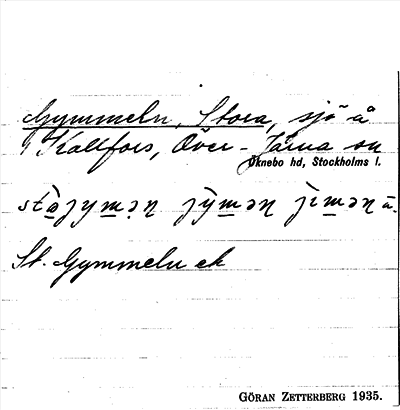 Gymmeln, Stora, sjö å
Kallfors, Över-Järna sn
Öknebo hd, Stockholms l.
St. Gymmeln ek
GÖRAN ZETTERBERG 1935.